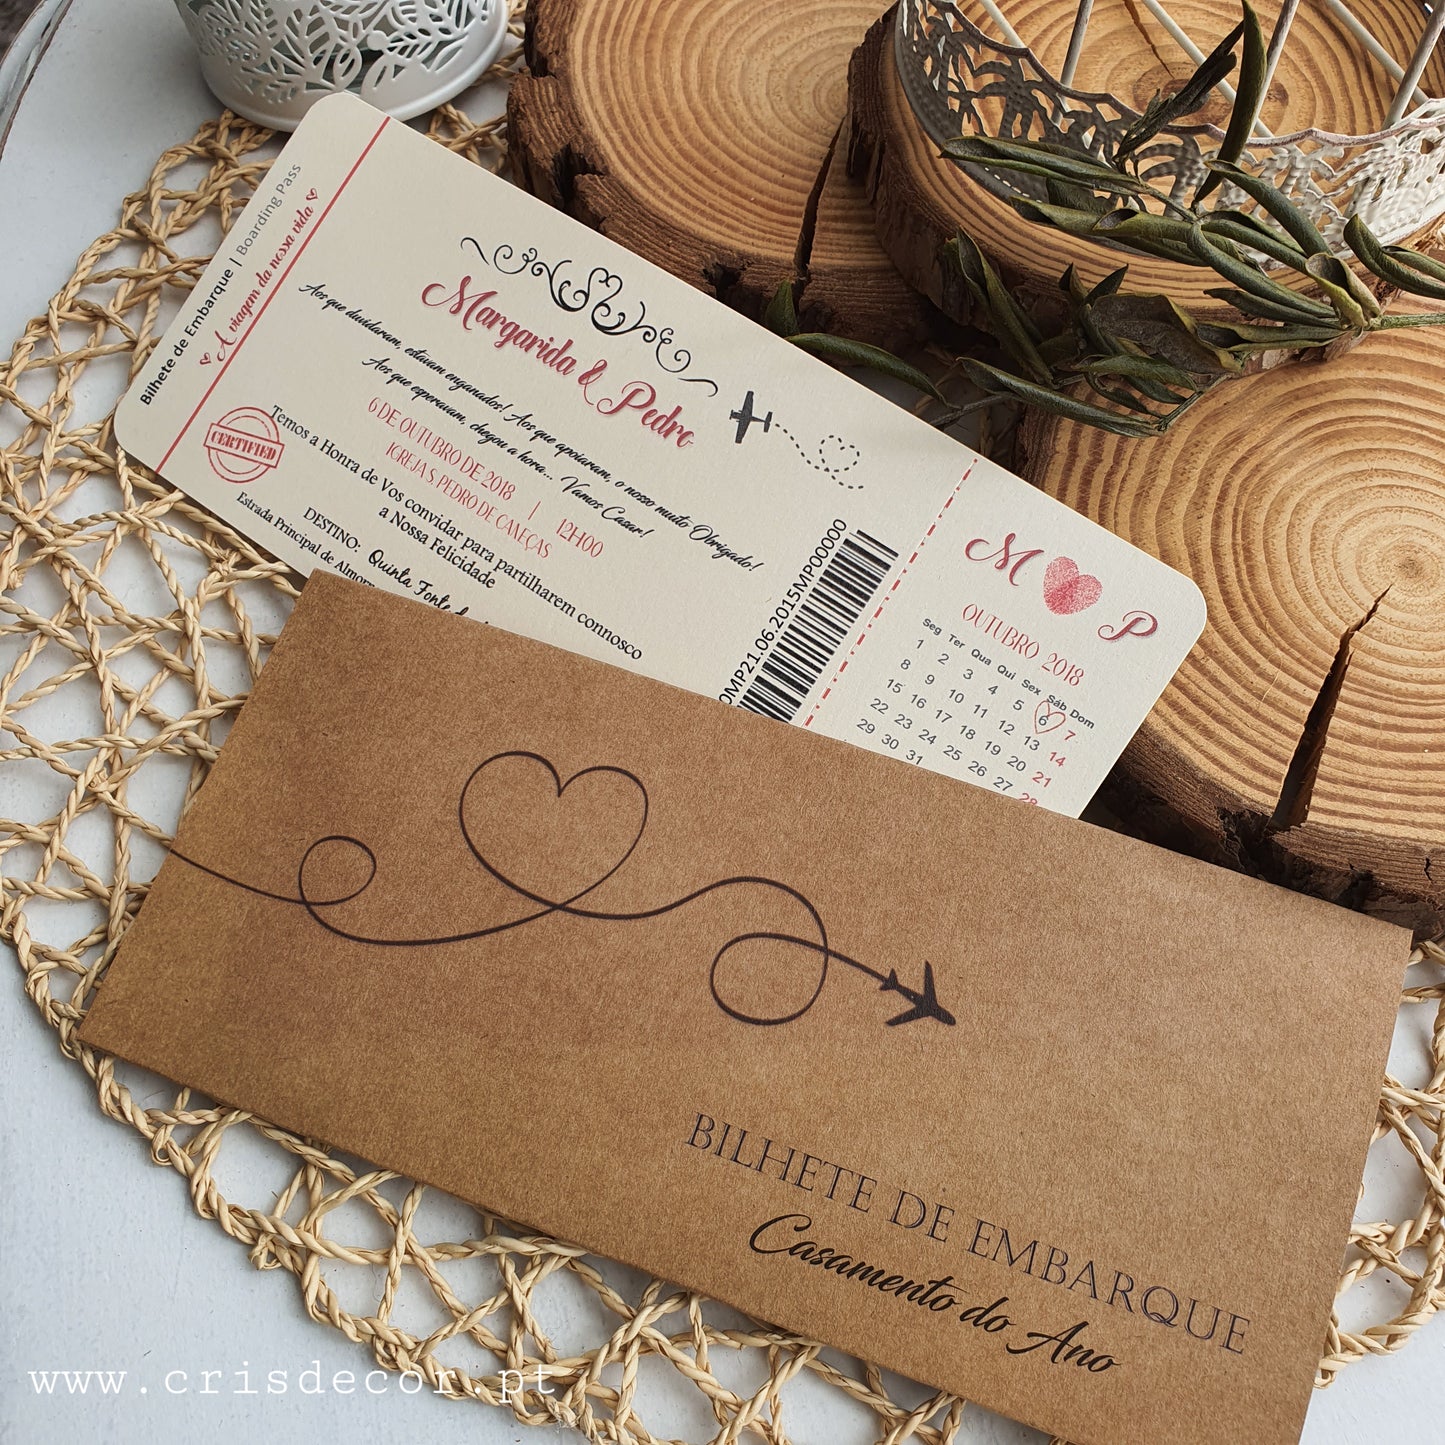 Bilhete de Embarque | Boarding Pass
A viagem da nossa vida
CERTIFIED
Margarida & Pedro
Aos que duvidaram, estavam enganados! Aos que apoiaram, o nosso muito Obrigado!
Aos que esperavam, chegou a hora... Vamos Casar!
6 DE OUTUBRO DE 2018 | 12H00
IGREJA S. PEDRO DE CANEÇAS
Temos a Honra de Vos convidar para partilharem connosco
a Nossa Felicidade
DESTINO: Quinta Fonte
Estrada Principal de
0MP21.06.2015MP00000
M P
OUTUBRO 2018
Seg Ter Qua Qui Sex Sáb Dom
1 2 3 4 5 6 7
8 9 10 11 12 13 14
15 16 17 18 19 20 21
22 23 24 25 26 27 28
29 30 31
BILHETE DE EMBARQUE
Casamento do Ano
www.crisdecor.pt